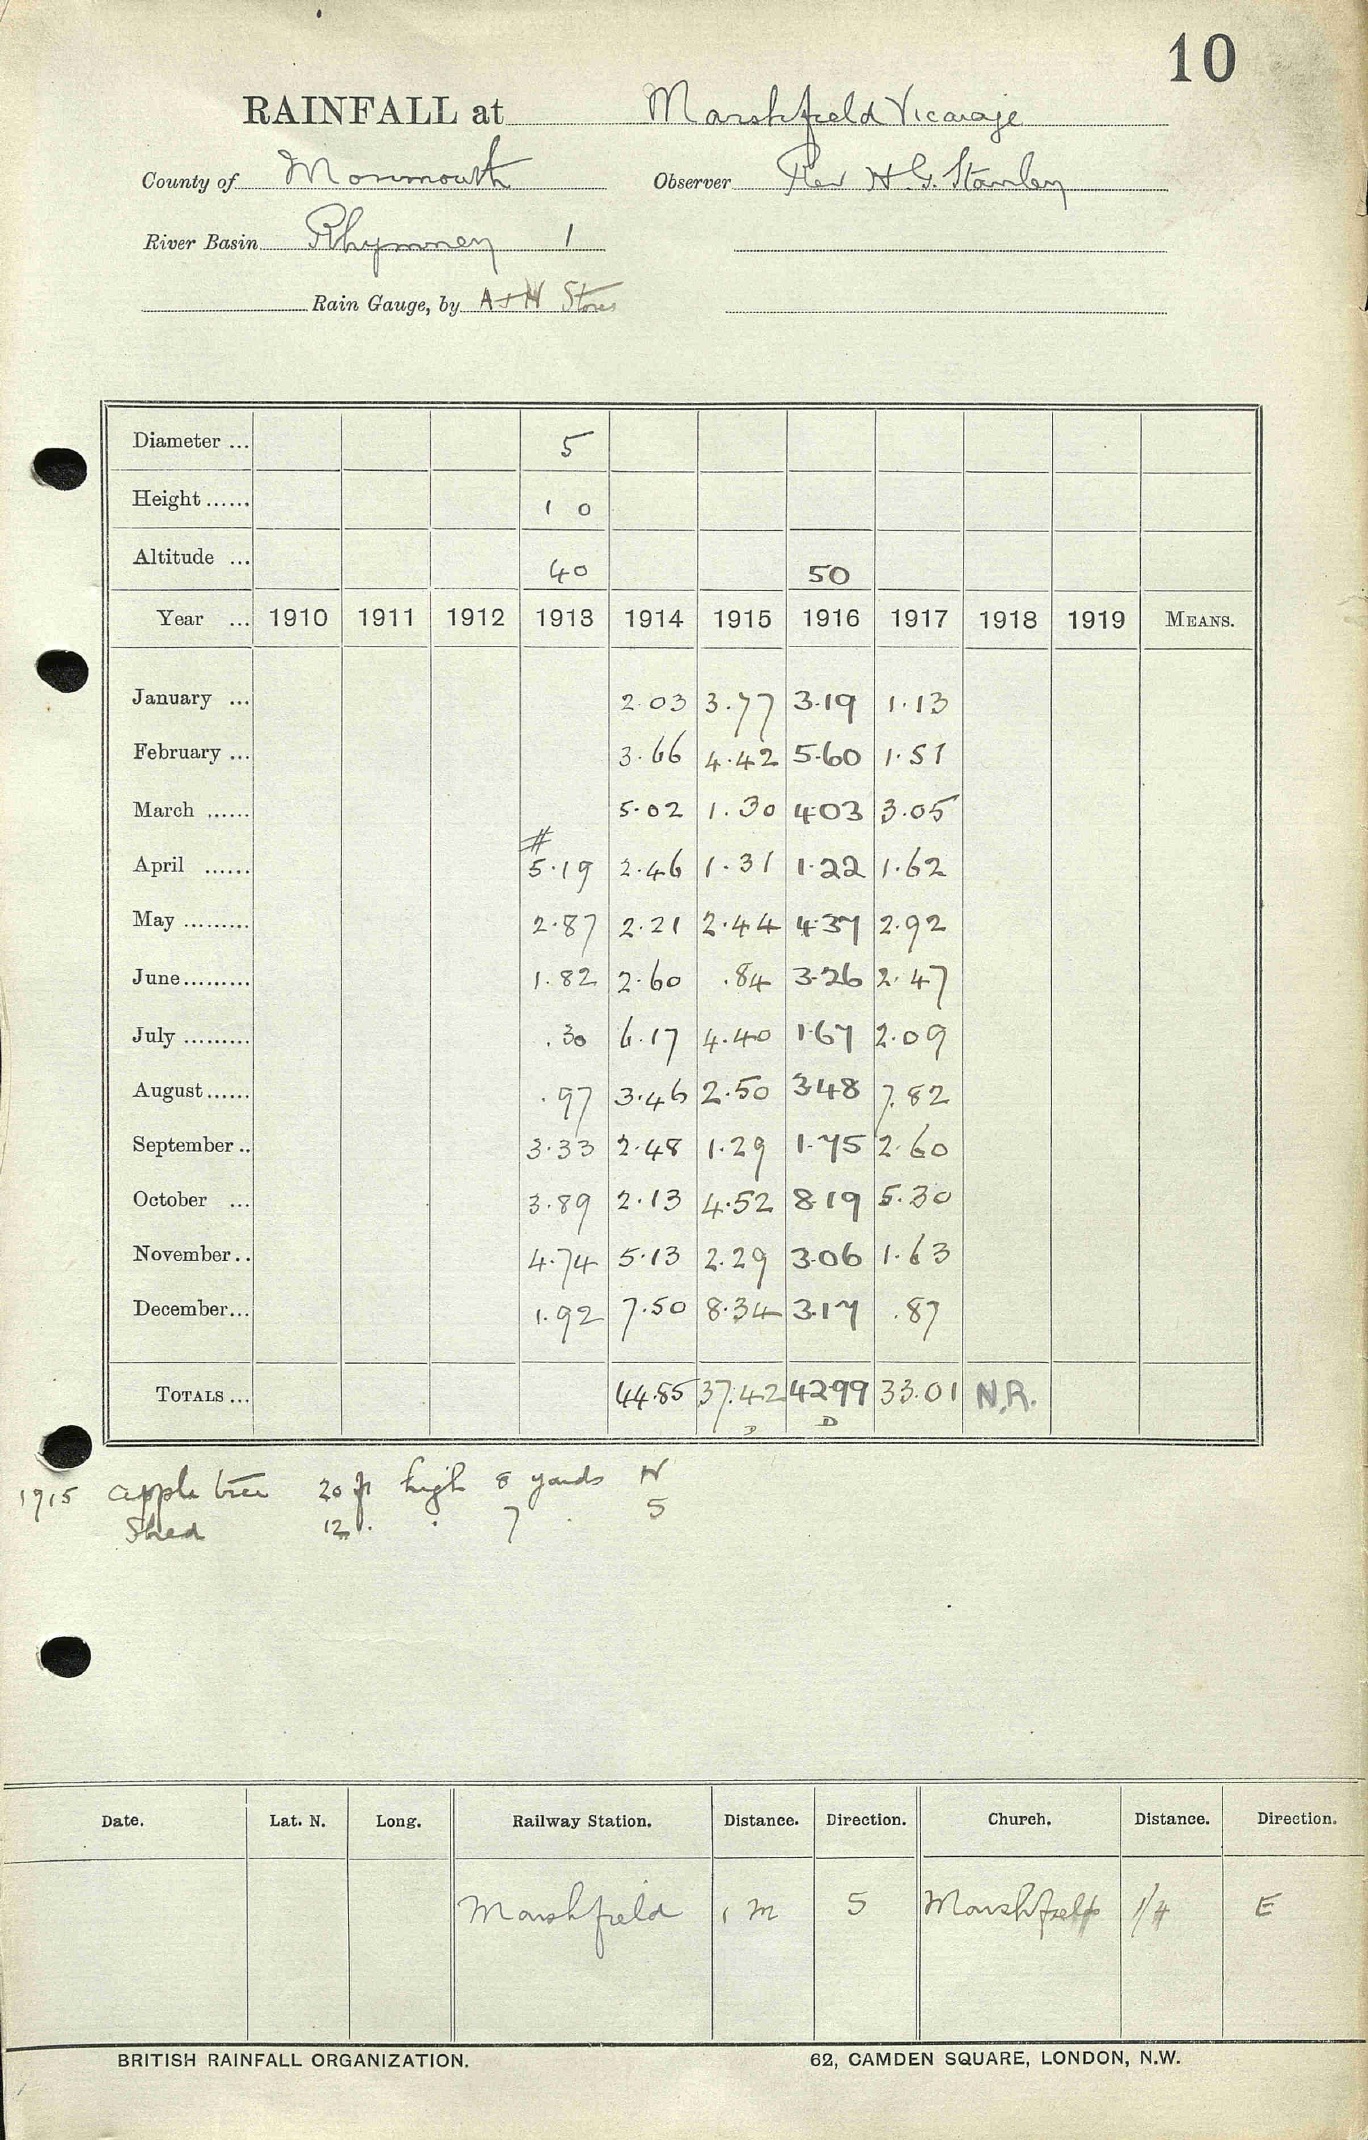 10
RAINFALL at Marshfield Vicarage
County of Monmouth Observer Rev H. G. Stanley
River Basin Rhymney 1
Rain Gauge, by A + N Stores
Diameter ... 5
Height ...... 10
Altitude ... 40 50
Year ... 1910 1911 1912 1913 1914 1915 1916 1917 1918 1919 MEANS.
January ... 2.03 3.77 3.19 1.13
February ... 3.66 4.42 5.60 1.51
March ...... 5.02 1.30 4.03 3.05
#
April ...... 5.19 2.46 1.31 1.22 1.62
May ......... 2.87 2.21 2.44 4.37 2.92
June ......... 1.82 2.60 .84 3.26 2.47
July ......... .30 6.17 4.40 1.67 2.09
August ...... .97 3.46 2.50 3.48 7.82
September .. 3.33 2.48 1.29 1.75 2.60
October ... 3.89 2.13 4.52 8.19 5.30
November .. 4.74 5.13 2.29 3.06 1.63
December ... 1.92 7.50 8.34 3.17 .87
TOTALS ... 44.85 37.42 42.99 33.01 N.R.
D D
1915 apple tree 20 ft high 8 yards N
Shed 12 . . 7 . S
Date. Lat. N. Long. Railway Station. Distance. Direction. Church. Distance. Direction.
Marshfield 1 m S Marshfield 1/4 E
BRITISH RAINFALL ORGANIZATION. 62, CAMDEN SQUARE, LONDON, N.W.